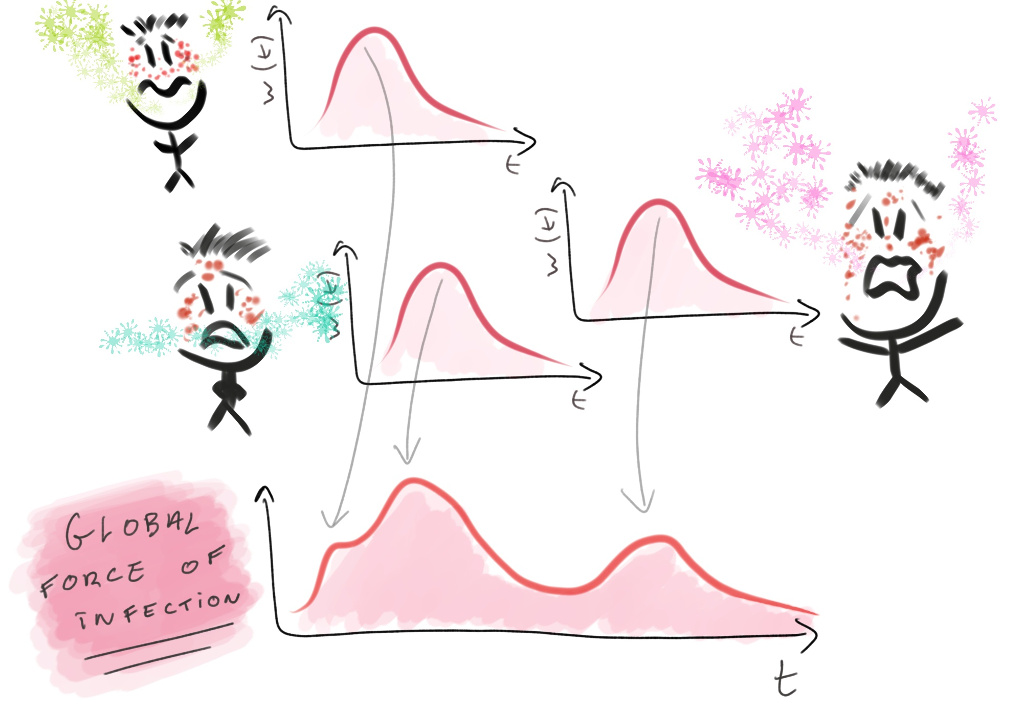 w(t)
t
w(t)
t
w(t)
t
GLOBAL
FORCE OF
INFECTION
t